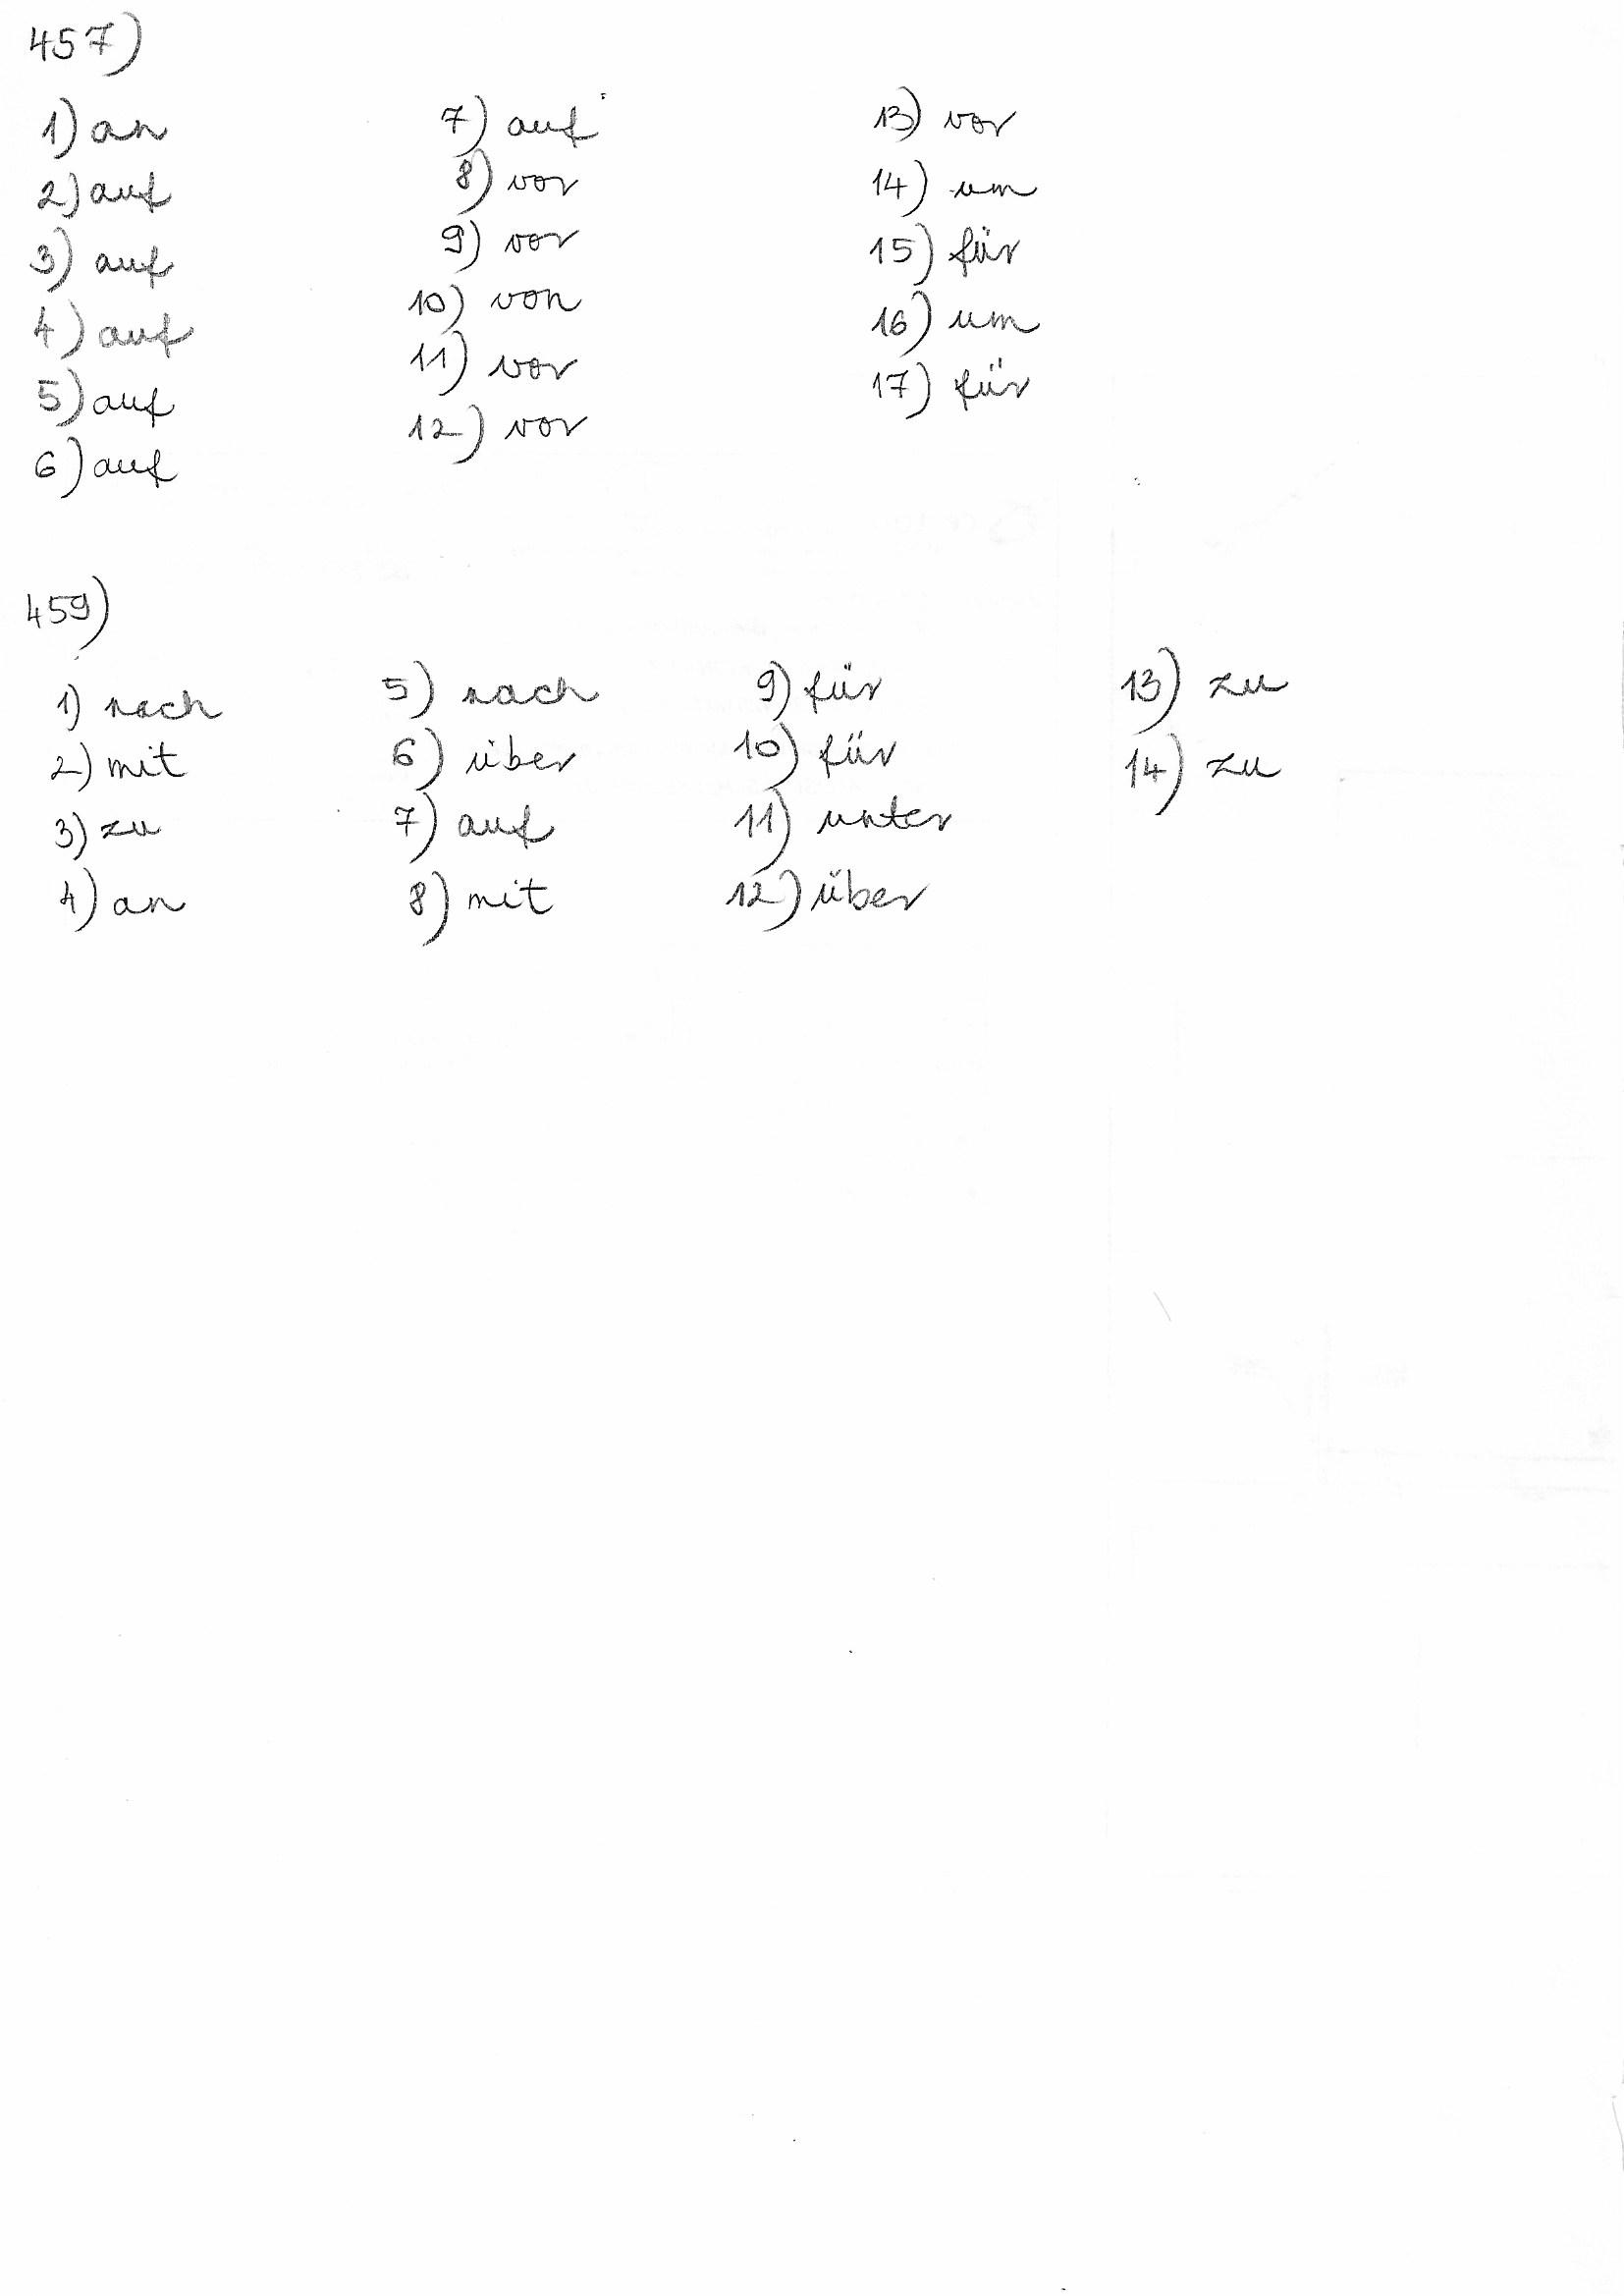 457)
1) an
2) auf
3) auf
4) auf
5) auf
6) auf
7) auf
8) vor
9) vor
10) von
11) vor
12) vor
13) vor
14) um
15) für
16) um
17) für
459)
1) nach
2) mit
3) zu
4) an
5) nach
6) über
7) auf
8) mit
9) für
10) für
11) unter
12) über
13) zu
14) zu